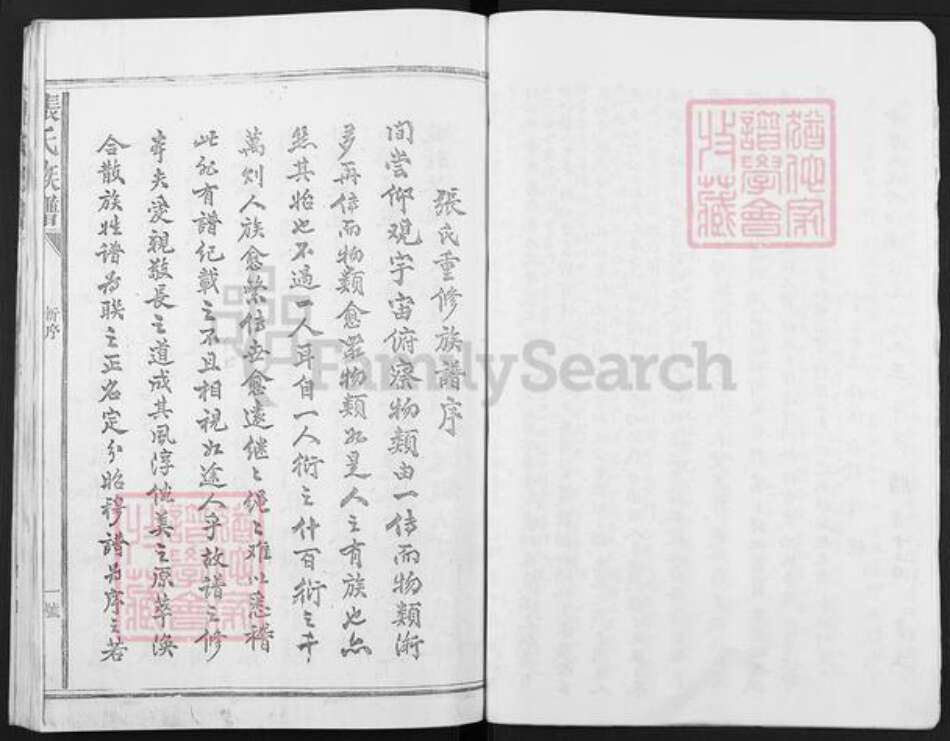 張氏重修族譜序
間嘗仰观宇宙俯察物類由一倍而物類漸
多再倍而物類愈眾物類如是人之有族也亦
然其始也不過一人耳自一人衍之什百衍之千
萬则人族愈繁传世愈遠继之繩之难以悉稽
此非有譜纪載之不且相視如途人乎故譜之修
夫愛親敬長之道成其風淳俗美之原萃渙
合散族姓譜为联之正名定分昭穆譜为序之若
張氏族譜
新序
一號
猶他家譜學會收藏
猶他家譜學會收藏
FamilySearch